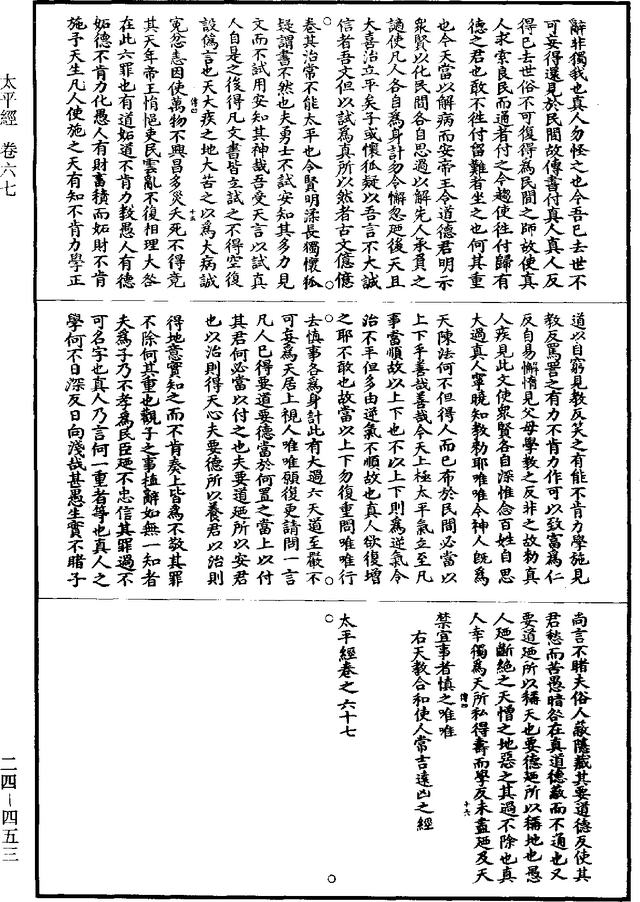 辭非獨我也真人勿怪之也今吾已去世不
可妄得還見於民間故傳書付真人真人反
得已去世俗不可復得為民間之師故使真
人求索良民而通者付之今趨使往付歸有
德之君也敢不往付留難者坐之也何其重
也今天當以解病而安帝王令道德君明示
眾賢以化民間各自思過以解先人承負之
謫使凡人各自為身計勿令懈忽廼後天且
大喜治立平矣子或懷狐疑以吾言不大誠
信者吾文但以試為真所以然者古文億億
卷其治常不能太平也令賢明深長獨懷狐
疑謂書不然也夫勇士不試安知其多力見
文而不試用安知其神哉吾受天言以試真
人自是之後得凡文書皆立試之不得空復
設偽言也天大疾之地大苦之以為大病誠
冤忿恚因使萬物不興昌多災夭死不得竟
其天年帝王愔悒吏民雲亂不復相理大咎
在此六罪也有道妬道不肯力教愚人有德
妬德不肯力化愚人有財畜積而妬財不肯
施予天生凡人使施之天有知不肯力學正
道以自窮見教反笑之有能不肯力學施見
教反罵詈之有力不肯力作可以致富為仁
反自易懈惰見父母學教之反非之故勑真
人疾見此文使眾賢各自深惟念百姓自思
大過真人寧曉知教勑耶唯唯今神人既為
天陳法何不但得人而已布於民間必當以
上下乎善哉善哉今天上極太平氣立至凡
事當順故以上下也不以上下則為逆氣令
治不平但多由逆氣不順故也真人欲復增
之耶不敢也故當以上下勿復重問唯唯行
去慎事各為身計此有大過六天道至嚴不
可妄為天居上視人唯唯願復更請問一言
凡人已得要道要德當於何置之當上以付
其君何必當以付之也夫要道廼所以安君
也以治則得天心夫要德所以養君以治則
得地意實知之而不肯奏上皆為不敬其罪
不除何其重也觀子之事植辭如無一知者
夫為子乃不孝為民臣廼不忠信其罪過不
可名字也真人乃言何一重者等也真人之
學何不日深反日向淺哉甚愚生實不睹子
尚言不睹夫俗人蔽隱藏其要道德反使其
君愁而苦愚暗咎在真道德蔽而不通也又
要道廼所以稱天也要德廼所以稱地也愚
人廼斷絕之天憎之地惡之其過不除也真
人幸獨為天所私得壽而學反未盡廼及天
禁宜事者慎之唯唯
右天教合和使人常吉遠凶之經
太平經卷之六十七
太平經 卷六七
二四—四五三
傳四
十五
傳四
十六